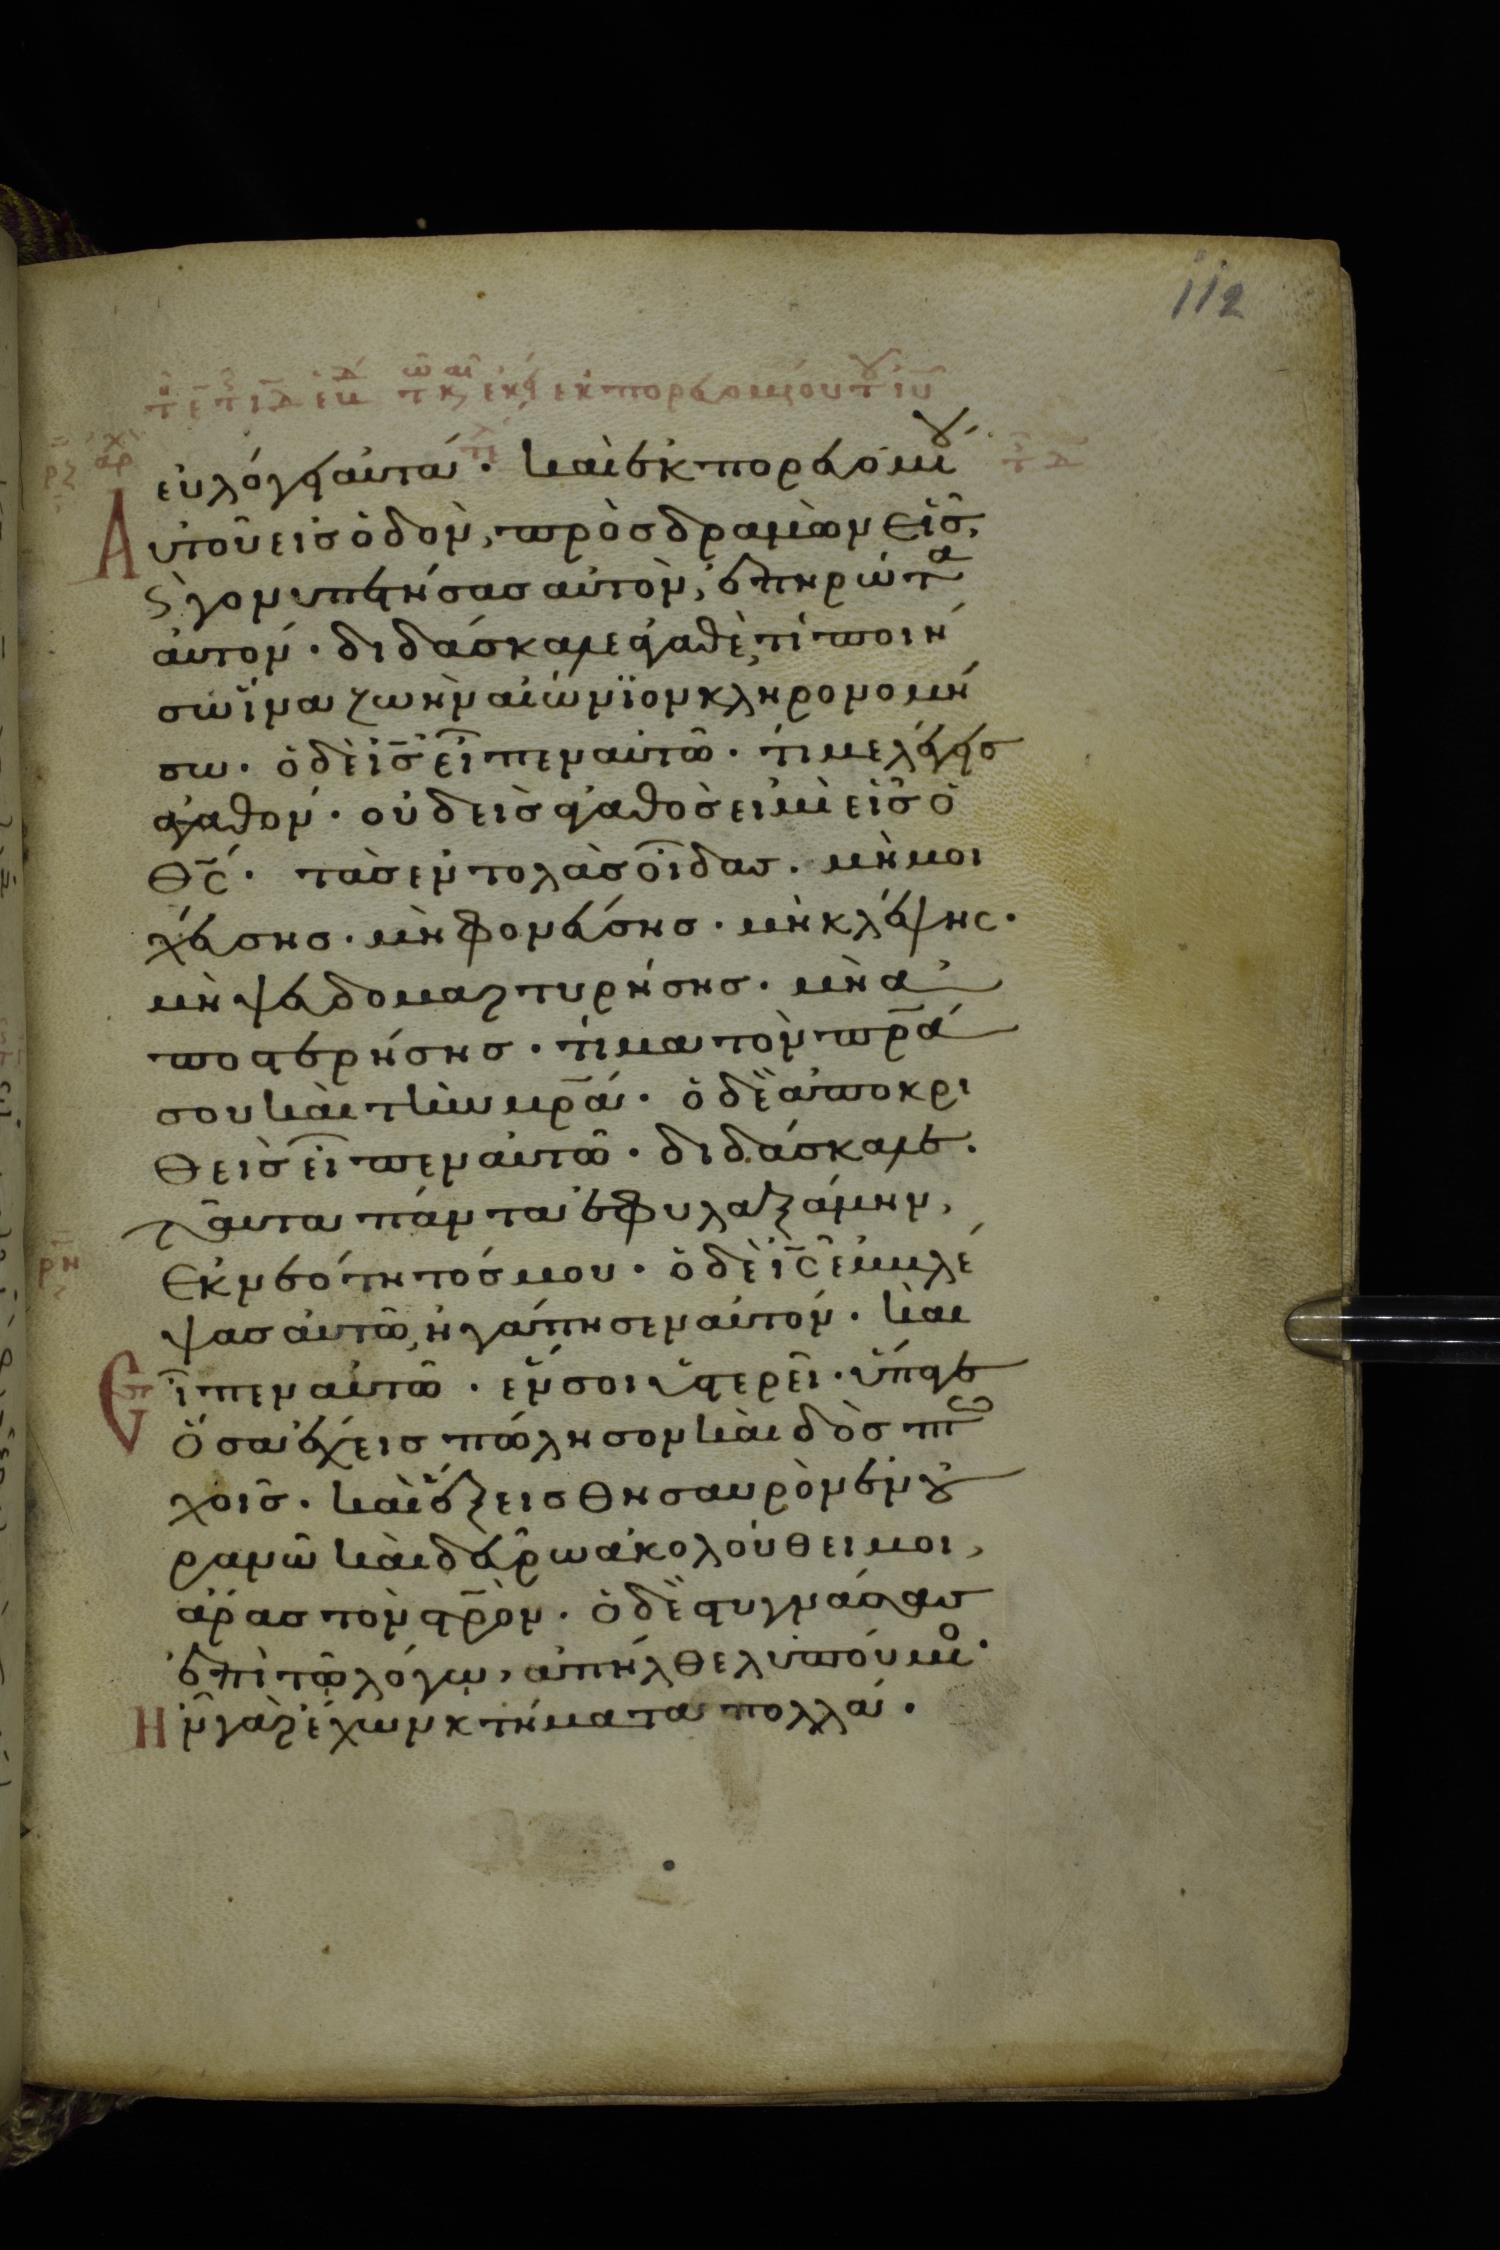 112
εὐλόγει αὐτά· καὶ ἐκπορευομ(έν)ου
Αὐτοῦ εἰς ὁδὸν, προσδραμὼν εἷς,
ϛ γονυπετήσας αὐτὸν, ἐπηρώτα
αὐτόν· διδάσκαλε ἀγαθὲ, τί ποιή
σω ἵνα ζωὴν αἰώνϊον κληρονομή
σω· ὁ δὲ ις εἶπεν αὐτῶ· τί με λέγεις
ἀγαθόν· οὐδεὶς ἀγαθὸς εἰ μὴ εἷς ὁ
θς· τὰς ἐντολὰς οἶδας· μὴ μοι
χεύσης· μὴ φονεύσης· μὴ κλέψης·
μὴ ψευδομαρτυρήσης· μὴ ἀ
ποστερήσης· τίμα τὸν πρα
σου καὶ τὴν μρα· ὁ δὲ ἀποκρι
θεὶς εἶπεν αὐτῶ· διδάσκαλε·
ταῦτα πάντα ἐφυλαξάμην,
ἐκ νεότητός μου· ὁ δὲ ις ἐμβλέ
ψας αὐτῶ, ἠγάπησεν αὐτόν· καὶ
Εἶπεν αὐτῶ· ἕν σοι ὑστερεῖ· ὕπαγε
ὅσα ἔχεις πώλησον καὶ δὸς πτω
χοῖς· καὶ ἕξεις θησαυρὸν ἐν οὐ
ρανῶ καὶ δεῦρω ἀκολούθει μοι,
ἄρας τὸν στρον· ὁ δὲ στυγνάσας
ἐπὶ τῶ λόγω, ἀπῆλθε λυπούμενο·
Ἦν γὰρ ἔχων κτήματα πολλά·